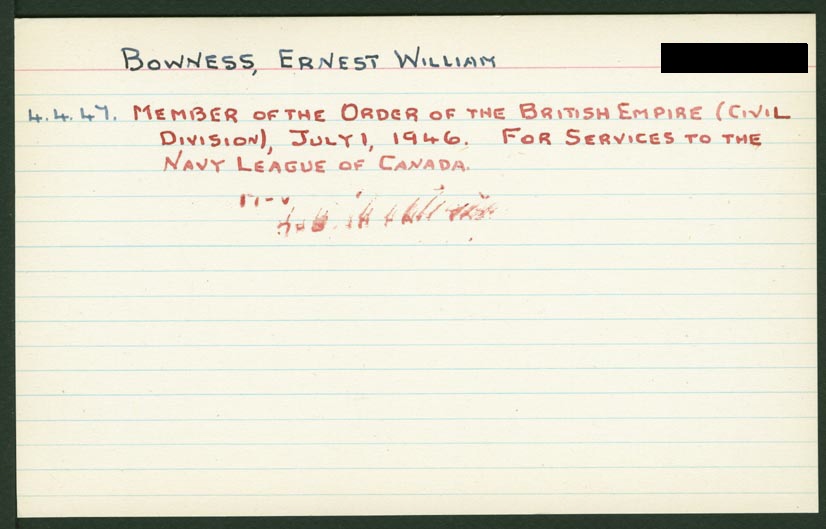 BOWNESS, ERNEST WILLIAM
4.4.47. MEMBER OF THE ORDER OF THE BRITISH EMPIRE (CIVIL
DIVISION), JULY 1, 1946. FOR SERVICES TO THE
NAVY LEAGUE OF CANADA.